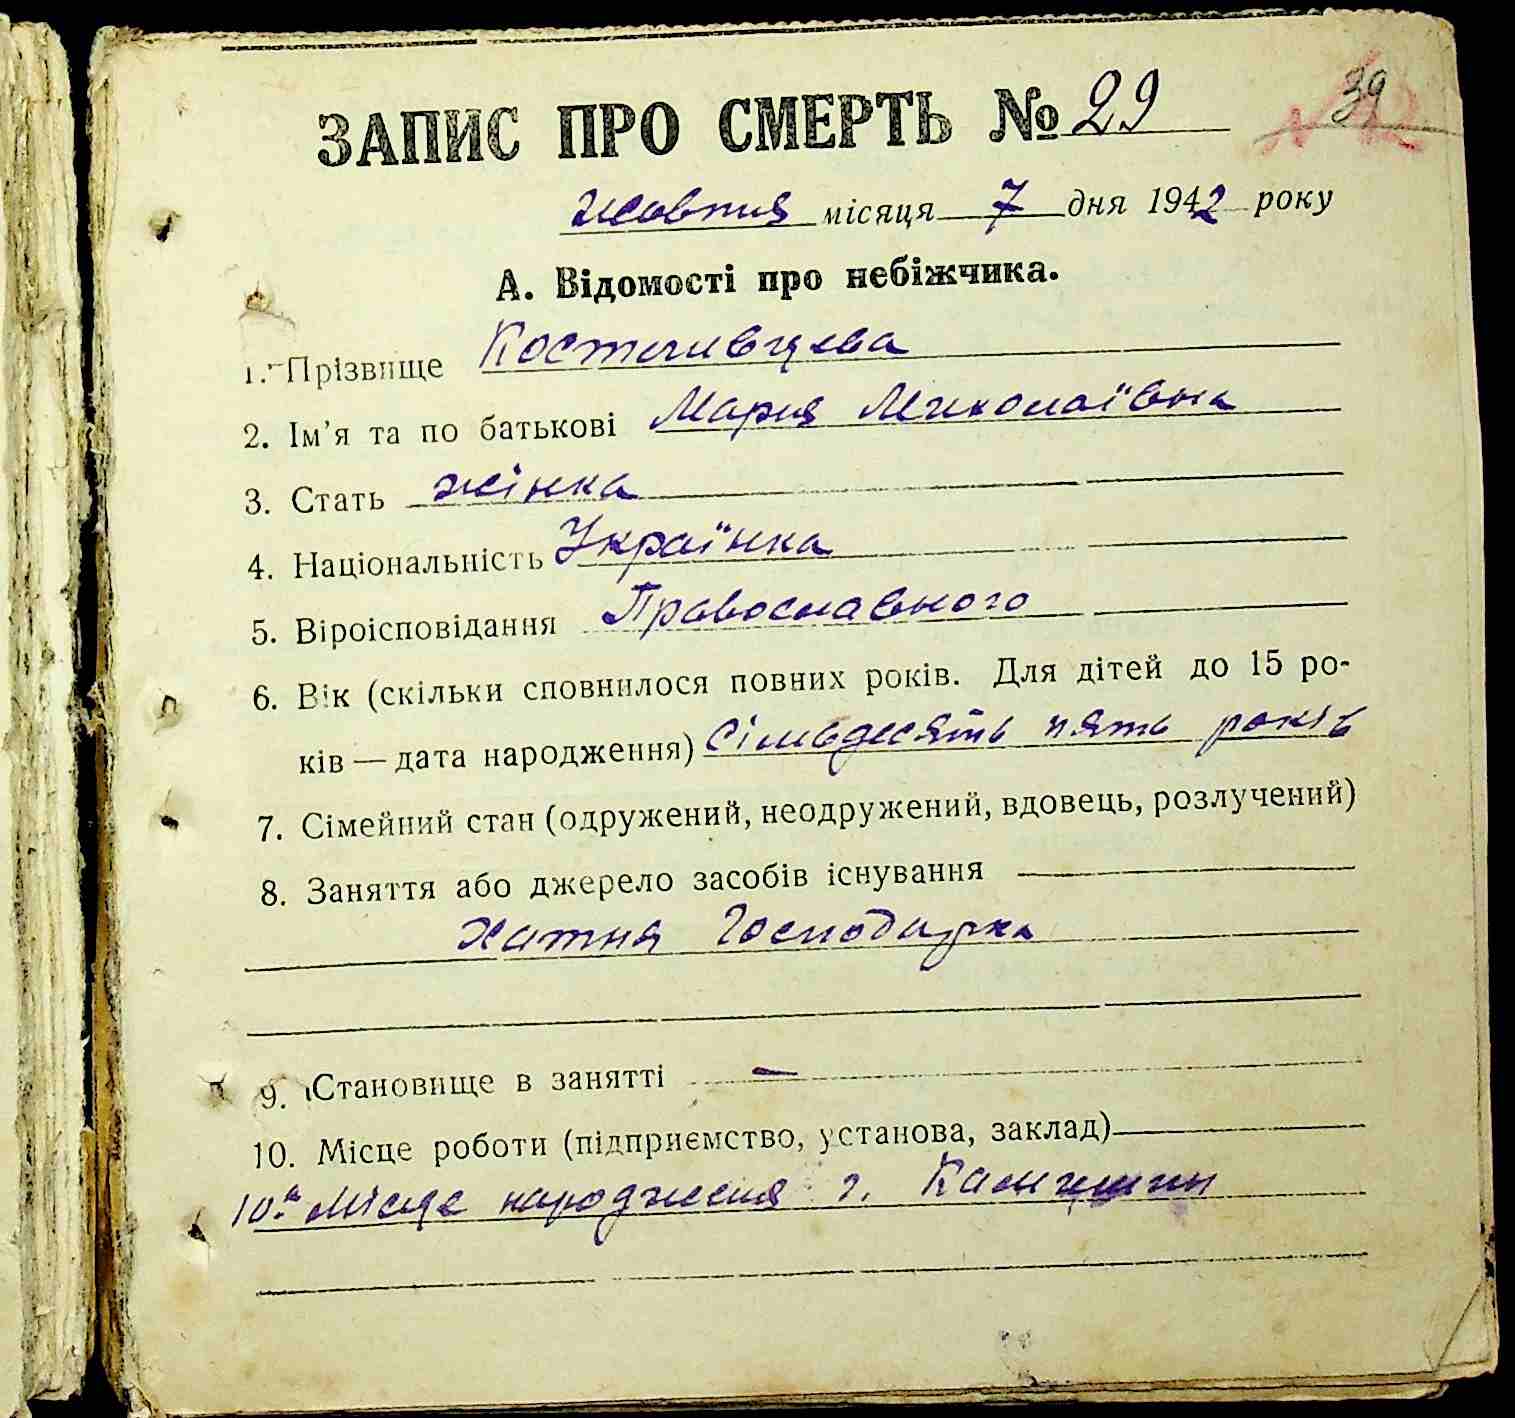 39
ЗАПИС ПРО СМЕРТЬ № 29
жовтня місяця 7 дня 1942 року
А. Відомості про небіжчика.
1. Прізвище
2. Ім'я та по батькові Мария Миколаївна
3. Стать жінка
4. Національність Українка
5. Віроісповідання Православного
6. Вік (скільки сповнилося повних років. Для дітей до 15 ро-
ків — дата народження) Сімьдесять пять років
7. Сімейний стан (одружений, неодружений, вдовець, розлучений)
8. Заняття або джерело засобів існування
хатня Господарка
9. Становище в занятті —
10. Місце роботи (підприємство, установа, заклад)
10а Місце народження г. Камишин